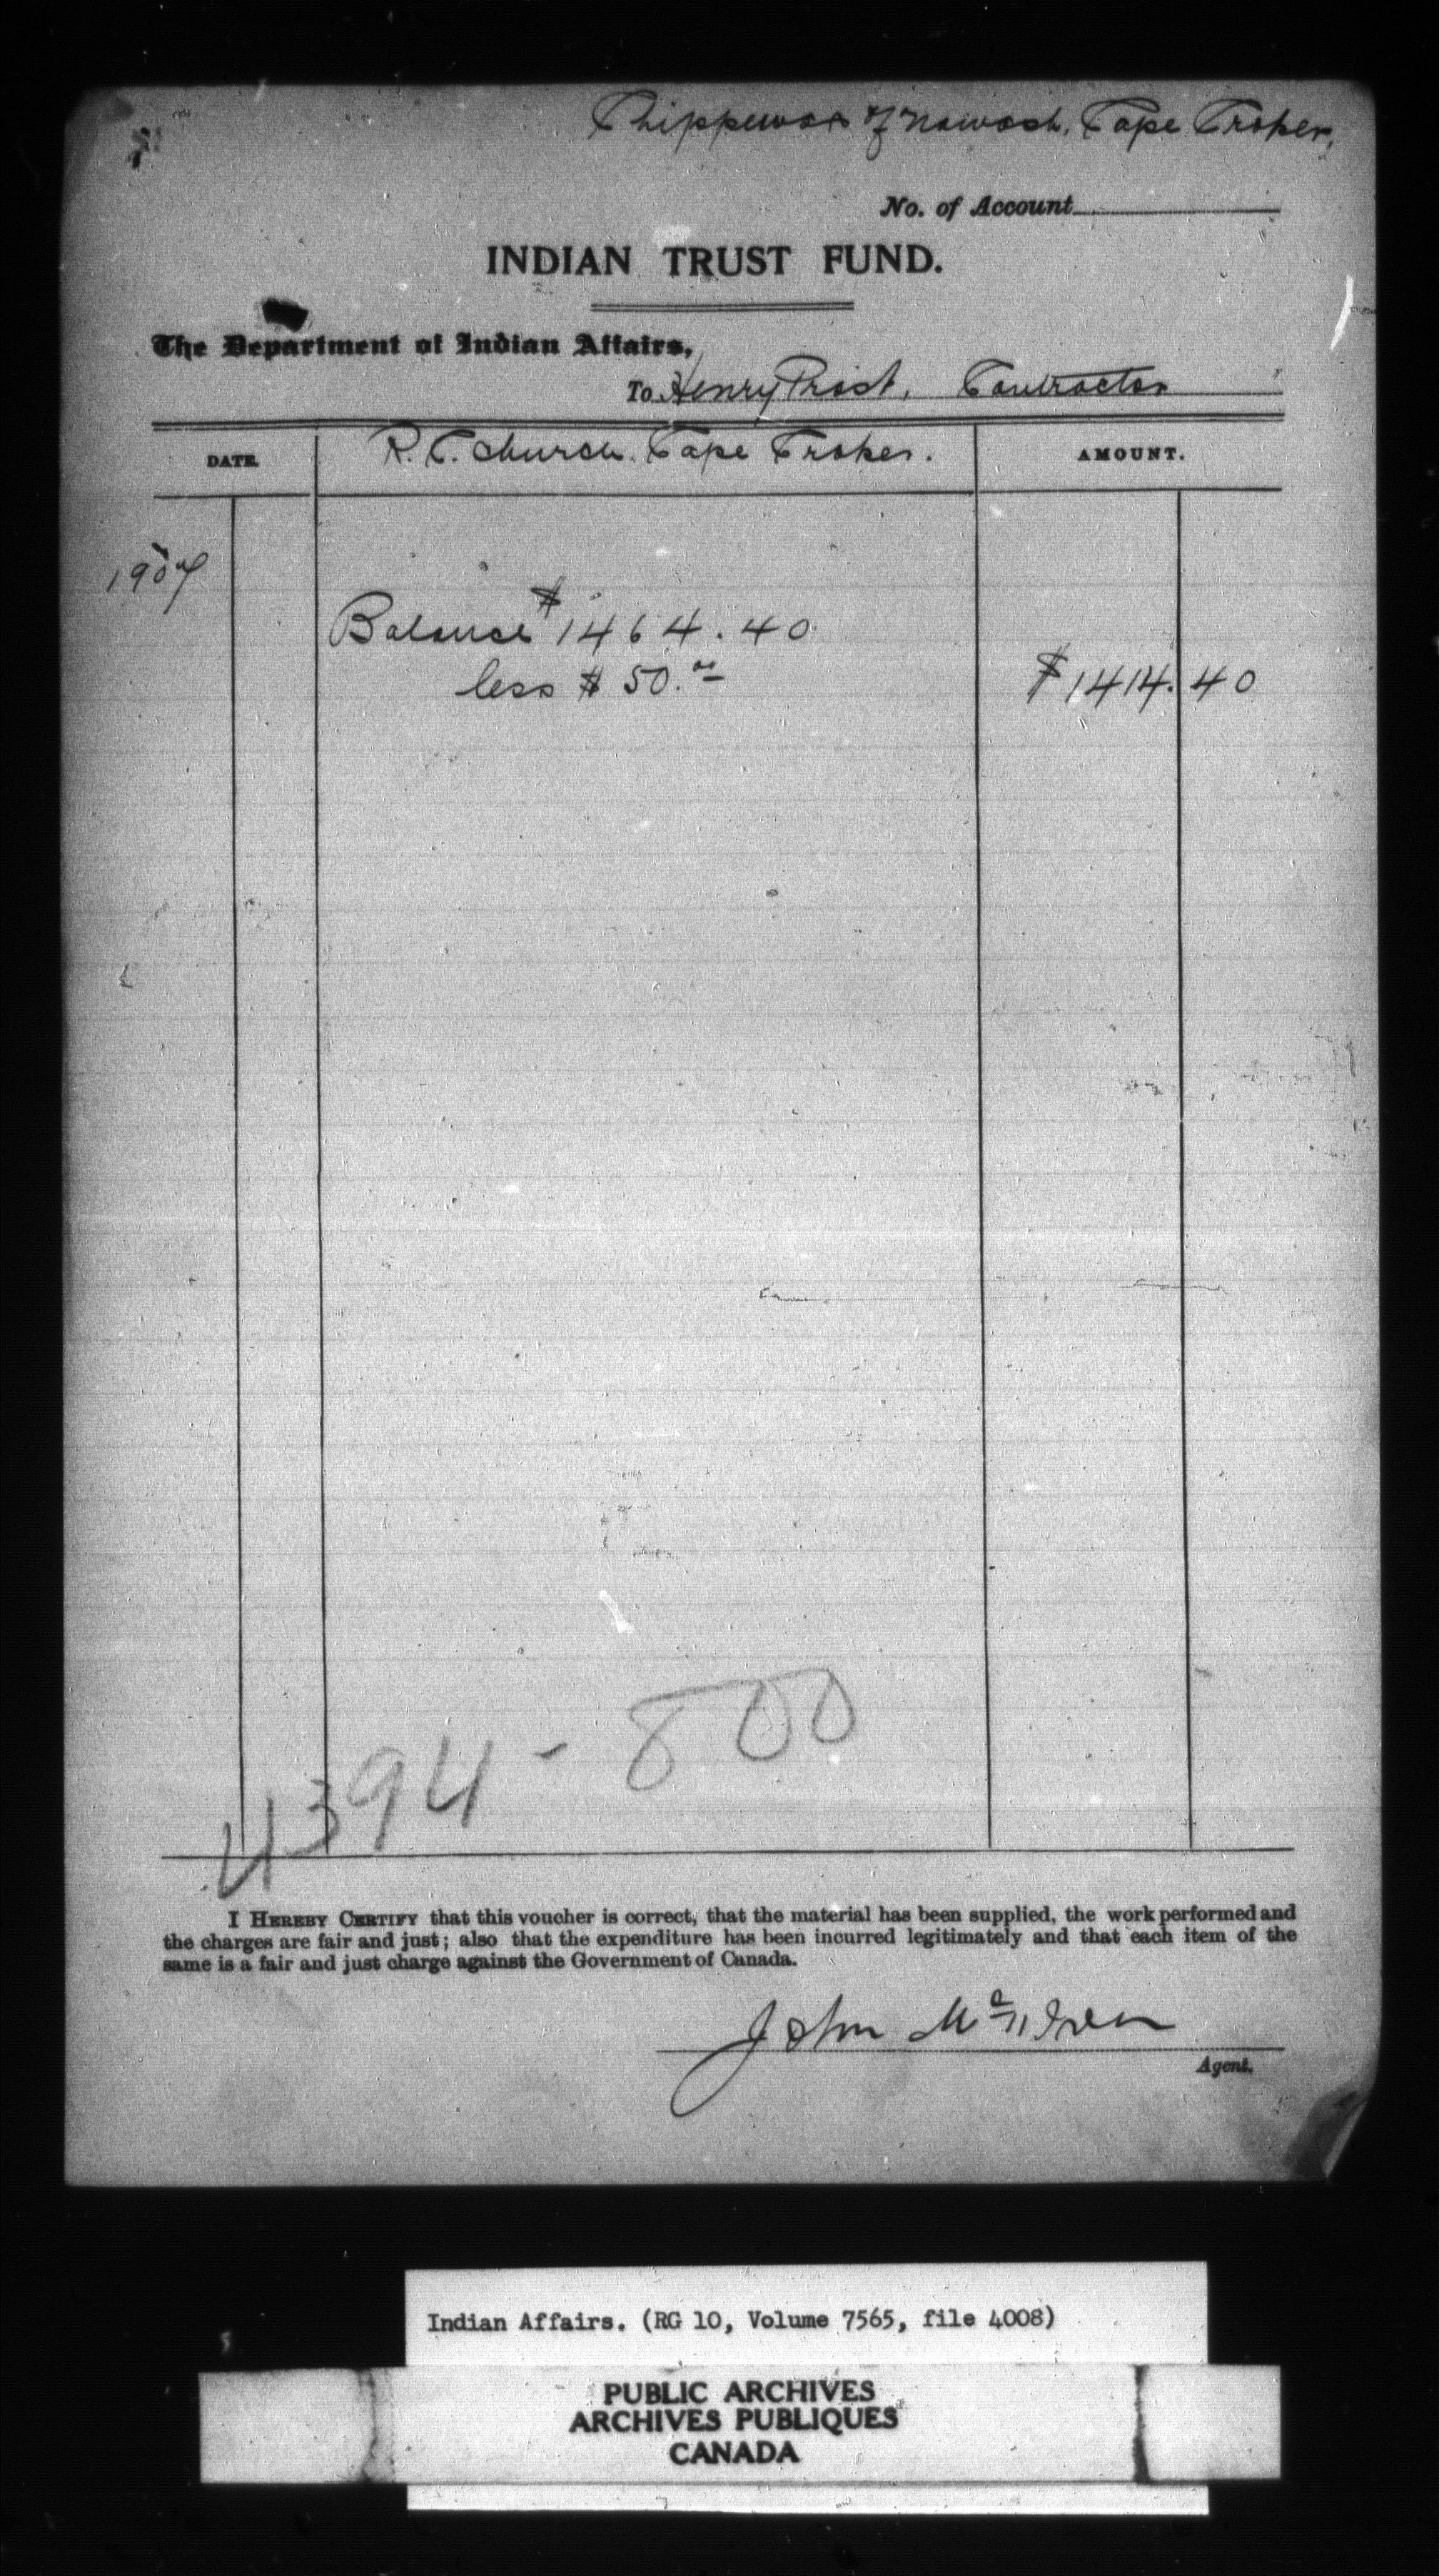 Chippewas of Nawash, Cape Croker,
No. of Account
INDIAN TRUST FUND.
The Department of Indian Affairs,
To Henry Contractor
DATE. R. C. Church. Cape Croker. AMOUNT.
1907
Balance $1464.40
less $50.00 $1414.40
4394-800
I HEREBY CERTIFY that this voucher is correct, that the material has been supplied, the work performed and
the charges are fair and just; also that the expenditure has been incurred legitimately and that each item of the
same is a fair and just charge against the Government of Canada.
John McIver
Agent.
Indian Affairs. (RG 10, Volume 7565, file 4008)
PUBLIC ARCHIVES
ARCHIVES PUBLIQUES
CANADA